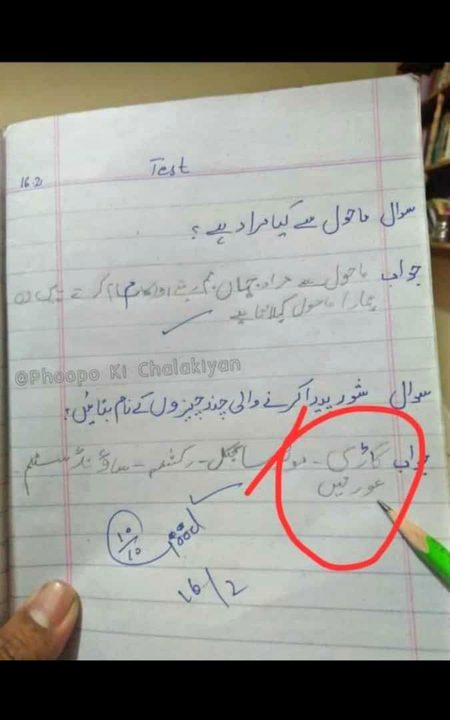 16.2
Test
سوال ماحول سے کیا مراد ہے؟
جواب ماحول سے مراد جہاں ہم رہتے اور کام کرتے ہیں
ہمارا ماحول کہلاتا ہے
@Phoopo Ki Chalakiyan
سوال شور پیدا کرنے والی چند چیزوں کے نام بتائیں؟
جواب گاڑی - موٹر سائیکل - رکشہ - ساؤنڈ سسٹم
عورتیں
10/10
Good
16/2